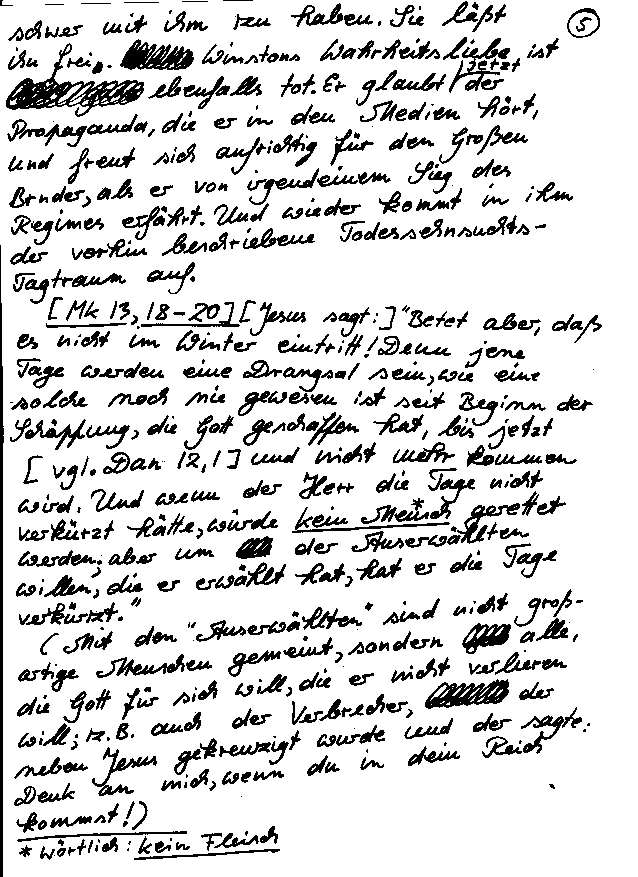 schwer mit ihm zu haben. Sie läßt
5
ihn frei. Winstons Wahrheitsliebe ist
ebenfalls tot. Er glaubt jetzt der
Propaganda, die er in den Medien hört,
und freut sich aufrichtig für den Großen
Bruder, als er von irgendeinem Sieg des
Regimes erfährt. Und wieder kommt in ihm
der vorhin beschriebene Todessehnsuchts-
Tagtraum auf.
[Mk 13, 18-20] [Jesus sagt:] "Betet aber, daß
es nicht im Winter eintritt! Denn jene
Tage werden eine Drangsal sein, wie eine
solche noch nie gewesen ist seit Beginn der
Schöpfung, die Gott geschaffen hat, bis jetzt
[vgl. Dan 12,1] und nicht mehr kommen
wird. Und wenn der Herr die Tage nicht
verkürzt hätte, würde kein Mensch* gerettet
werden; aber um der Auserwählten
willen, die er erwählt hat, hat er die Tage
verkürzt."
(Mit den "Auserwählten" sind nicht groß-
artige Menschen gemeint, sondern alle,
die Gott für sich will, die er nicht verlieren
will; z.B. auch der Verbrecher, der
neben Jesus gekreuzigt wurde und der sagte:
Denk an mich, wenn du in dein Reich
kommst!)
* wörtlich: kein Fleisch